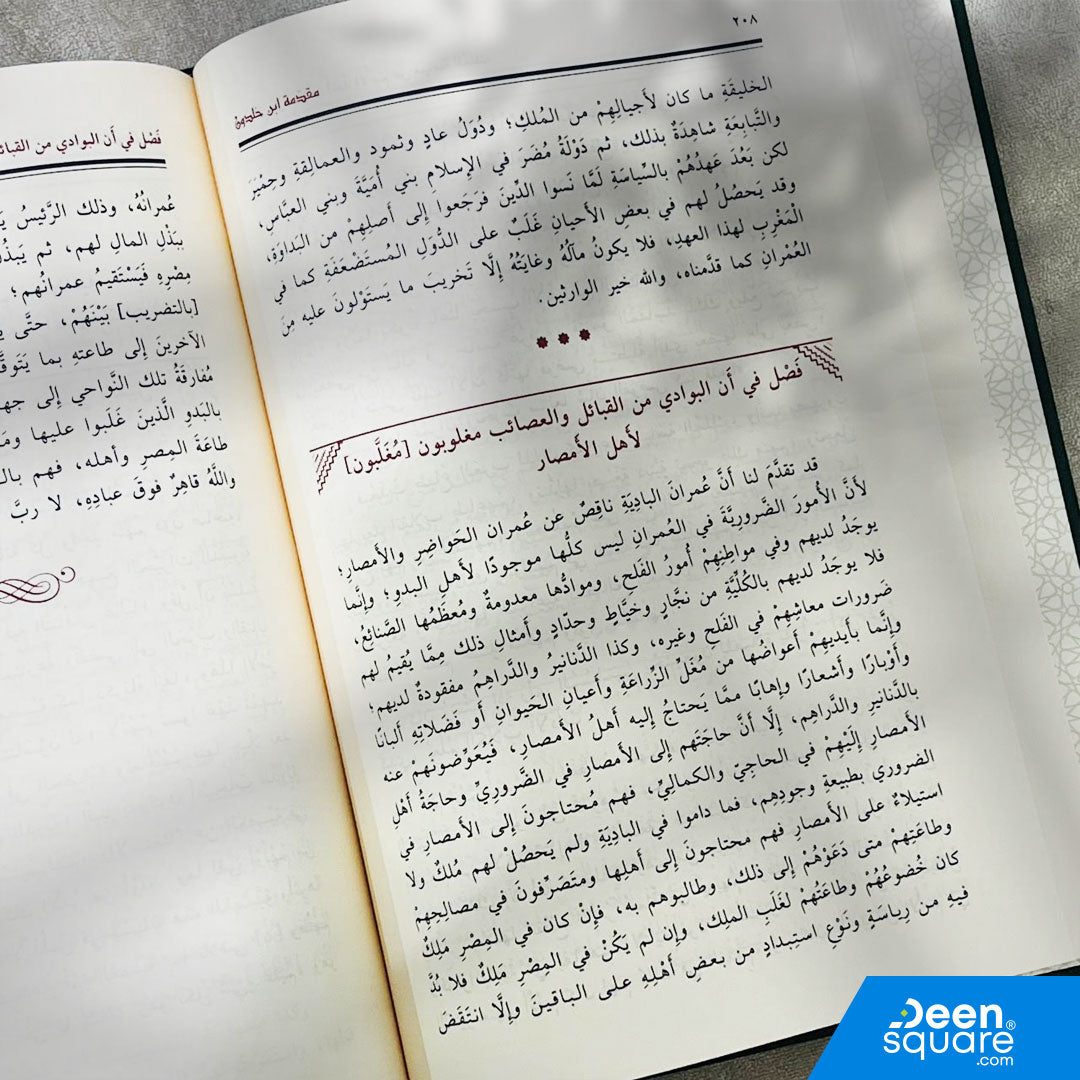 ٢٠٨
مقدمة ابن خلدون
الخليقَةِ ما كان لأجيالِهِمْ من المُلكِ؛ ودُوَلُ عادٍ وثمود والعمالقةِ وحِمْيَرَ
والتَّبابِعَةِ شاهِدَةٌ بذلك، ثم دَوْلَةُ مُضَرَ في الإسلامِ بني أُمَيَّةَ وبني العبَّاسِ،
لكن بَعُدَ عَهدُهُمْ بالسِّياسَةِ لَمَّا نَسوا الدِّينَ فرَجَعوا إلى أصلِهِمْ من البَداوَةِ،
وقد يَحصُلُ لهم في بعضِ الأحيانِ غَلَبٌ على الدُّوَلِ المُستَضْعَفَةِ كما في
الْمَغْرِبِ لهذا العهدِ، فلا يكونُ مآلُهُ وغايَتُهُ إلَّا تَخريبَ ما يَستَوْلونَ عليه مِنَ
العُمْرانِ كما قدَّمناه، والله خير الوارثين.
فَصْل في أَن البوادي من القبائل والعصائب مغلوبون [مُغَلَّبون]
لأهل الأَمصار
قد تقدَّمَ لنا أنَّ عُمرانَ البادِيَةِ ناقِصٌ عن عُمران الحَواضِرِ والأَمصارِ؛
لأنَّ الأُمورَ الضَّرورِيَّةَ في العُمرانِ ليس كلُّها موجودًا لأهلِ البدوِ؛ وإنَّما
يوجَدُ لديهم وفي مواطِنِهِمْ أُمورُ الفَلحِ، وموادُّها معدومةٌ ومُعظَمُها الصَّنائِعُ،
فلا يوجَدُ لديهم بالكُلِّيَّةِ من نجَّارٍ وخيَّاطٍ وحدّادٍ وأَمثالِ ذلك مِمَّا يُقيمُ لهم
ضَرورات معاشِهِمْ في الفَلحِ وغيره، وكذا الدَّنانيرُ والدَّراهِمُ مفقودةٌ لديهم؛
وإنَّما بأيديهِمْ أعواضُها من مُغَلِّ الزِّراعَةِ وأعيانِ الحَيوانِ أو فَضَلاتِهِ ألبانًا
وأَوْبارًا وأَشعارًا وإهابًا ممَّا يَحتاجُ إليه أهلُ الأَمصارِ، فَيُعَوِّضونَهمْ عنه
بالدَّنانيرِ والدَّراهِم، إلَّا أنَّ حاجَتَهم إلى الأَمصارِ في الضَّروريِّ وحاجَةُ أهْلِ
الأَمصارِ إلَيْهِمْ في الحاجِيِّ والكمالِيِّ، فهم مُحتاجونَ إلى الأَمصارِ في
الضروري بطبيعةِ وجودِهِم، فما داموا في البادِيَةِ ولم يَحصُلْ لهم مُلكٌ ولا
استيلاءٌ على الأَمصارِ فهم محتاجونَ إلى أهلِها ومتَصَرِّفونَ في مصالِحِهِمْ
وطاعَتِهِمْ متى دَعَوْهُمْ إلى ذلك، وطالبوهم به، فإِنْ كان في المِصْرِ مَلِكٌ
كان خُضوعُهُمْ وطاعَتُهُمْ لغَلَبِ الملِك، وإن لم يَكُنْ في المِصْرِ مَلِكٌ فلا بُدَّ
فيهِ من رِياسَةٍ ونَوْعِ استِبدادٍ من بعضِ أَهْلِهِ على الباقينَ وإلَّا انتَقَضَ
فَصْل في أن البوادي من القبائل
عُمرانُهُ، وذلك الرَّئيسُ
ببَذْلِ المالِ لهم، ثم
مِصْرِهِ فَيَسْتَقيمُ عمرانُهم؛
[بالتضريب] بَيْنَهُمْ، حتَّى
الآخرينَ إلى طاعتهِ بما
مُفارقَةُ تلك النَّواحي إلى
بالبَدوِ الَّذينَ غَلَبوا عليها
طاعَةَ المِصرِ وأهله، فهم
واللَّهُ قاهِرٌ فوقَ عبادِهِ، لا ربَّ
Deen
square®
.com